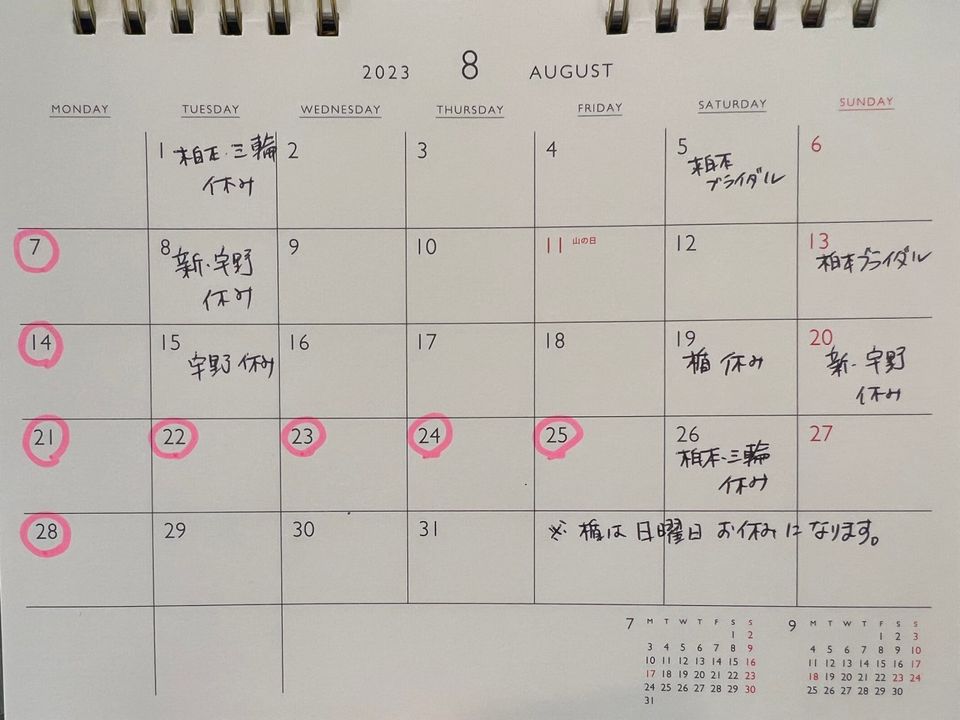 2023 8 AUGUST
MONDAY TUESDAY WEDNESDAY THURSDAY FRIDAY SATURDAY SUNDAY
1 柏本・三輪 2 3 4 5 柏本 6
休み ブライダル
7 8 新・宇野 9 10 11 山の日 12 13 柏本ブライダル
休み
14 15 宇野 休み 16 17 18 19 楯 休み 20 新・宇野
休み
21 22 23 24 25 26 柏本・三輪 27
休み
28 29 30 31 ※ 楯は 日曜日 お休みに なります。
7 M T W T F S S
1 2
3 4 5 6 7 8 9
10 11 12 13 14 15 16
17 18 19 20 21 22 23
24 25 26 27 28 29 30
31
9 M T W T F S S
1 2 3
4 5 6 7 8 9 10
11 12 13 14 15 16 17
18 19 20 21 22 23 24
25 26 27 28 29 30